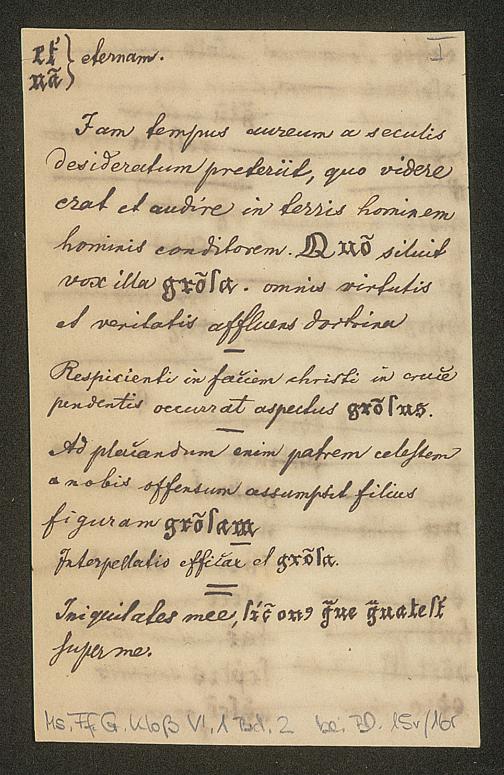 I
et̃ } eternam.
nã
Jam tempus aureum a seculis
desideratum preteriit, quo videre
erat et audire in terris hominem
hominis conditorem. Quõ siluit
vox illa grõſa. omnis virtutis
et veritatis affluens doctrina
Respicienti in faciem christi in cruce
pendentis occurrat aspectus grõſus.
Ad placandum enim patrem celestem
a nobis offensum assumpsit filius
figuram grõſam
Interpellatio efficax et grõſa.
Iniquitates mee, ſic̃ onꝰ g̃ue g̃uateſt
super me.
Ms. Ff. G. Kloß VI, 1 Bd. 2 bei. BD. 15v/16r